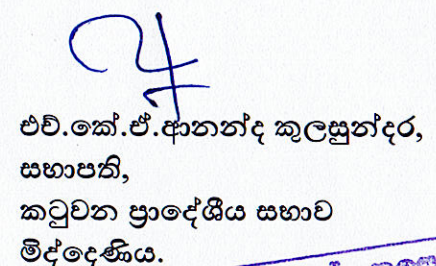 එච්.කේ.ඒ.ආනන්ද කුලසුන්දර,
සභාපති,
කටුවන ප්‍රාදේශීය සභාව
මිද්දෙණිය.